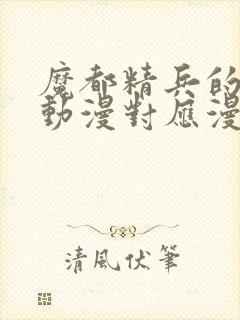 魔都精兵的
動漫對應漫
清風伏筆